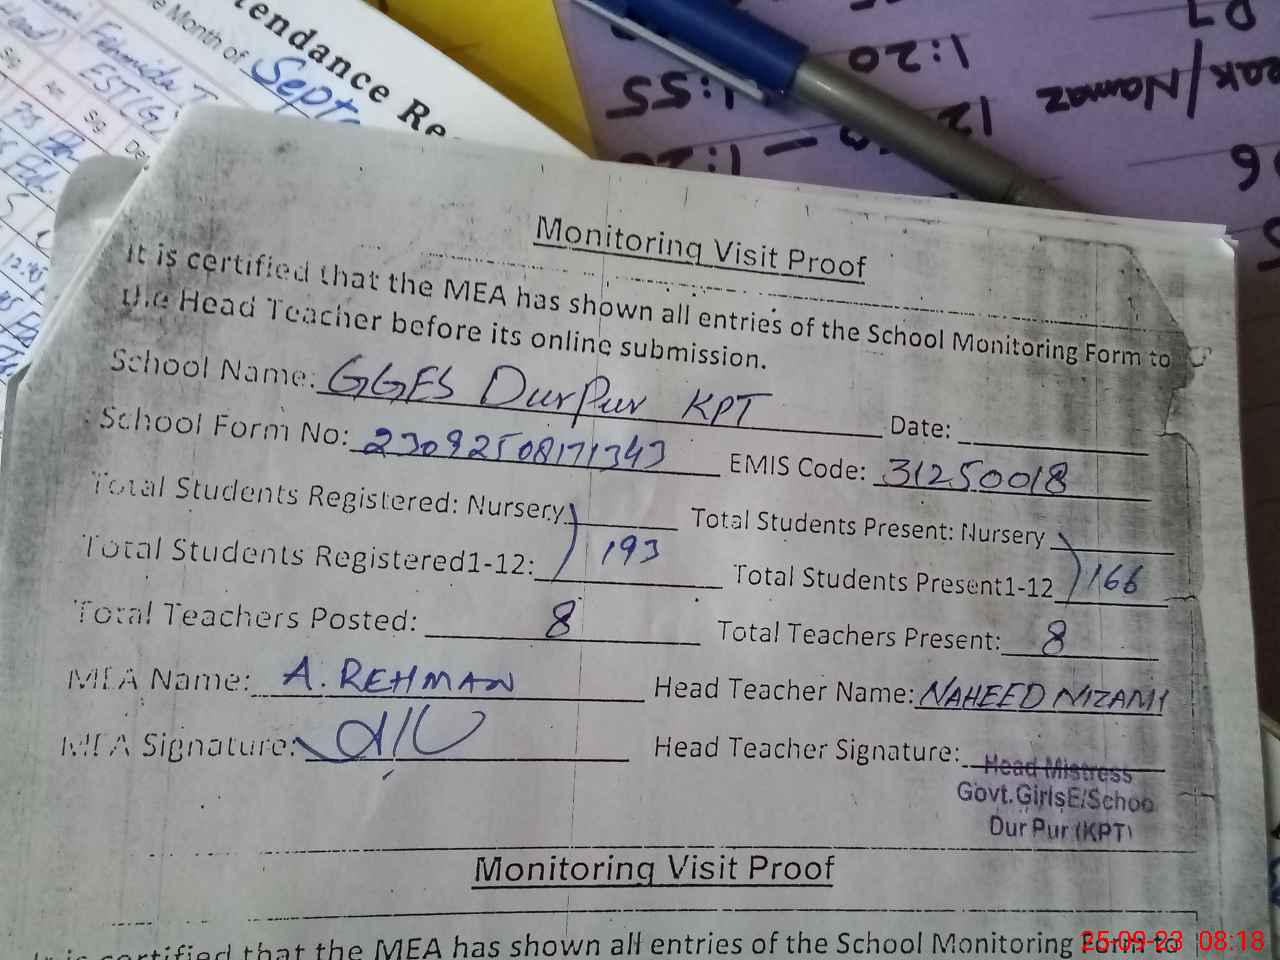 tendance Re
Month of Septe
Farmida T
EST(G)
Sig
Sig
12:45
1:20
1:55
Monitoring Visit Proof
It is certified that the MEA has shown all entries of the School Monitoring Form to
the Head Teacher before its online submission.
School Name: GGES DurPur KPT Date:
School Form No: 23092508171343 EMIS Code: 31250018
Total Students Registered: Nursery Total Students Present: Nursery
Total Students Registered1-12: 193 Total Students Present1-12 166
Total Teachers Posted: 8 Total Teachers Present: 8
MEA Name: A. REHMAN Head Teacher Name: NAHEED NIZAMI
MEA Signature: Head Teacher Signature:
Head Mistress
Govt.GirlsE/Schoo
Dur Pur (KPT)
Monitoring Visit Proof
It is certified that the MEA has shown all entries of the School Monitoring Form to
25-09-23 08:18